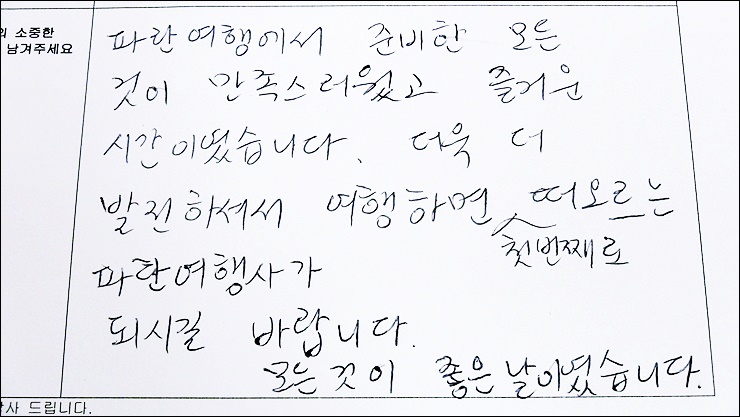 의 소중한
남겨주세요
파란여행에서 준비한 모든
것이 만족스러웠고 즐거운
시간이였습니다. 더욱 더
발전하셔서 여행하면 첫번째로 떠오르는
파란여행사가
되시길 바랍니다.
모든것이 좋은날이였습니다.
사 드립니다.